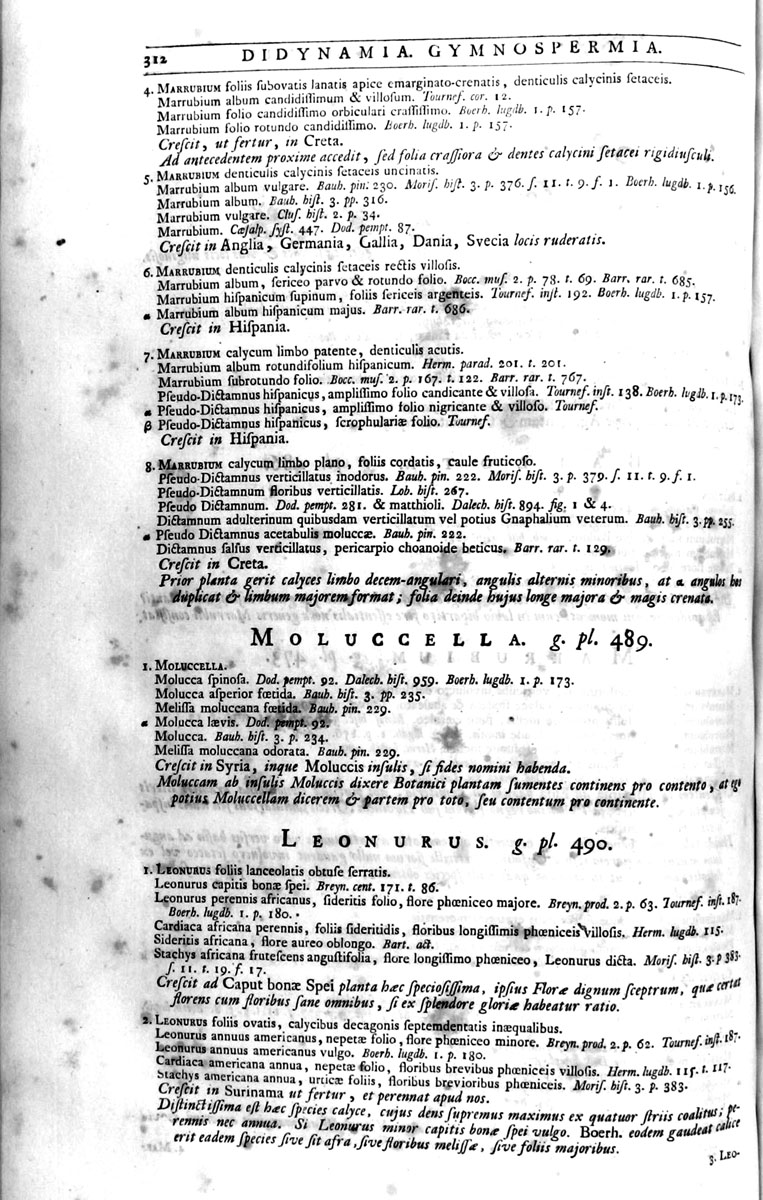 312 DIDYNAMIA. GYMNOSPERMIA.
4. MARRUBIUM foliis ſubovatis lanatis apice emarginato-crenatis, denticulis calycinis ſetaceis.
Marrubium album candidiſſimum & villoſum. Tournef. cor. 12.
Marrubium folio candidiſſimo orbiculari craſſiſſimo. Boerh. lugdb. 1. p. 157.
Marrubium folio rotundo candidiſſimo. Boerh. lugdb. 1. p. 157.
Creſcit, ut fertur, in Creta.
Ad antecedentem proxime accedit, ſed folia craſſiora & dentes calycini ſetacei rigidiuſculi.
5. MARRUBIUM denticulis calycinis ſetaceis uncinatis.
Marrubium album vulgare. Bauh. pin. 230. Moriſ. hiſt. 3. p. 376. ſ. 11. t. 9. f. 1. Boerh. lugdb. 1. p. 156.
Marrubium album. Bauh. hiſt. 3. pp. 316.
Marrubium vulgare. Cluſ. hiſt. 2. p. 34.
Marrubium. Cæſalp. ſyſt. 447. Dod. pempt. 87.
Creſcit in Anglia, Germania, Gallia, Dania, Svecia locis ruderatis.
6. MARRUBIUM denticulis calycinis ſetaceis rectis villoſis.
Marrubium album, ſericeo parvo & rotundo folio. Bocc. muſ. 2. p. 78. t. 69. Barr. rar. t. 685.
Marrubium hiſpanicum ſupinum, foliis ſericeis argenteis. Tournef. inſt. 192. Boerh. lugdb. 1. p. 157.
α Marrubium album hiſpanicum majus. Barr. rar. t. 686.
Creſcit in Hiſpania.
7. MARRUBIUM calycum limbo patente, denticulis acutis.
Marrubium album rotundifolium hiſpanicum. Herm. parad. 201. t. 201.
Marrubium ſubrotundo folio. Bocc. muſ. 2. p. 167. t. 122. Barr. rar. t. 767.
Pſeudo-Dictamnus hiſpanicus, ampliſſimo folio candicante & villoſa. Tournef. inſt. 138. Boerh. lugdb. 1. p. 173.
α Pſeudo-Dictamnus hiſpanicus, ampliſſimo folio nigricante & villoſo. Tournef.
β Pſeudo-Dictamnus hiſpanicus, ſcrophulariæ folio. Tournef.
Creſcit in Hiſpania.
8. MARRUBIUM calycum limbo plano, foliis cordatis, caule fruticoſo.
Pſeudo-Dictamnus verticillatus inodorus. Bauh. pin. 222. Moriſ. hiſt. 3. p. 379. ſ. 11. t. 9. f. 1.
Pſeudo-Dictamnum floribus verticillatis. Lob. hiſt. 267.
Pſeudo Dictamnum. Dod. pempt. 281. & matthioli. Dalech. hiſt. 894. fig. 1 & 4.
Dictamnum adulterinum quibusdam verticillatum vel potius Gnaphalium veterum. Bauh. hiſt. 3. pp. 255.
α Pſeudo Dictamnus acetabulis moluccæ. Bauh. pin. 222.
Dictamnus falſus verticillatus, pericarpio choanoide beticus. Barr. rar. t. 129.
Creſcit in Creta.
Prior planta gerit calyces limbo decem-angulari, angulis alternis minoribus, at α angulos hos
duplicat & limbum majorem format; folia deinde hujus longe majora & magis crenata.
MOLUCCELLA. g. pl. 489.
1. MOLUCCELLA.
Molucca ſpinoſa. Dod. pempt. 92. Dalech. hiſt. 959. Boerh. lugdb. 1. p. 173.
Molucca aſperior fœtida. Bauh. hiſt. 3. pp. 235.
Meliſſa moluccana fœtida. Bauh. pin. 229.
α Molucca lævis. Dod. pempt. 92.
Molucca. Bauh. hiſt. 3. p. 234.
Meliſſa moluccana odorata. Bauh. pin. 229.
Creſcit in Syria, inque Moluccis inſulis, ſi fides nomini habenda.
Moluccam ab inſulis Moluccis dixere Botanici plantam ſumentes continens pro contento, at ego
potius Moluccellam dicerem & partem pro toto, ſeu contentum pro continente.
LEONURUS. g. pl. 490.
1. LEONURUS foliis lanceolatis obtuſe ſerratis.
Leonurus capitis bonæ ſpei. Breyn. cent. 171. t. 86.
Leonurus perennis africanus, ſideritis folio, flore phœniceo majore. Breyn. prod. 2. p. 63. Tournef. inſt. 187.
Boerh. lugdb. 1. p. 180.
Cardiaca africana perennis, foliis ſideritidis, floribus longiſſimis phœniceis villoſis. Herm. lugdb. 115.
Sideritis africana, flore aureo oblongo. Bart. act.
Stachys africana fruteſcens anguſtifolia, flore longiſſimo phœniceo, Leonurus dicta. Moriſ. hiſt. 3. p 383.
ſ. 11. t. 19. f. 17.
Creſcit ad Caput bonæ Spei planta hæc ſpecioſiſſima, ipſius Floræ dignum ſceptrum, quæ certat
florens cum floribus ſane omnibus, ſi ex ſplendore gloriæ habeatur ratio.
2. LEONURUS foliis ovatis, calycibus decagonis ſeptemdentatis inæqualibus.
Leonurus annuus americanus, nepetæ folio, flore phœniceo minore. Breyn. prod. 2. p. 62. Tournef. inſt. 187.
Leonurus annuus americanus vulgo. Boerh. lugdb. 1. p. 180.
Cardiaca americana annua, nepetæ folio, floribus brevibus phœniceis villoſis. Herm. lugdb. 115. t. 117.
Stachys americana annua, urticæ foliis, floribus brevioribus phœniceis. Moriſ. hiſt. 3. p. 383.
Creſcit in Surinama ut fertur, et perennat apud nos.
Diſtinctiſſima eſt hæc ſpecies calyce, cujus dens ſupremus maximus ex quatuor ſtriis coalitus; pe-
rennis nec annua. Si Leonurus minor capitis bonæ ſpei vulgo. Boerh. eodem gaudeat calice
erit eadem ſpecies ſive ſit afra, ſive floribus meliſſæ, ſive foliis majoribus.
3. LEO-